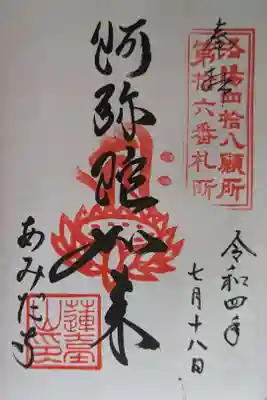 奉拝
洛陽四拾八願所
第拾六番札所
令和四年
七月十八日
阿弥陀如来
あみだ寺
蓮臺
山印